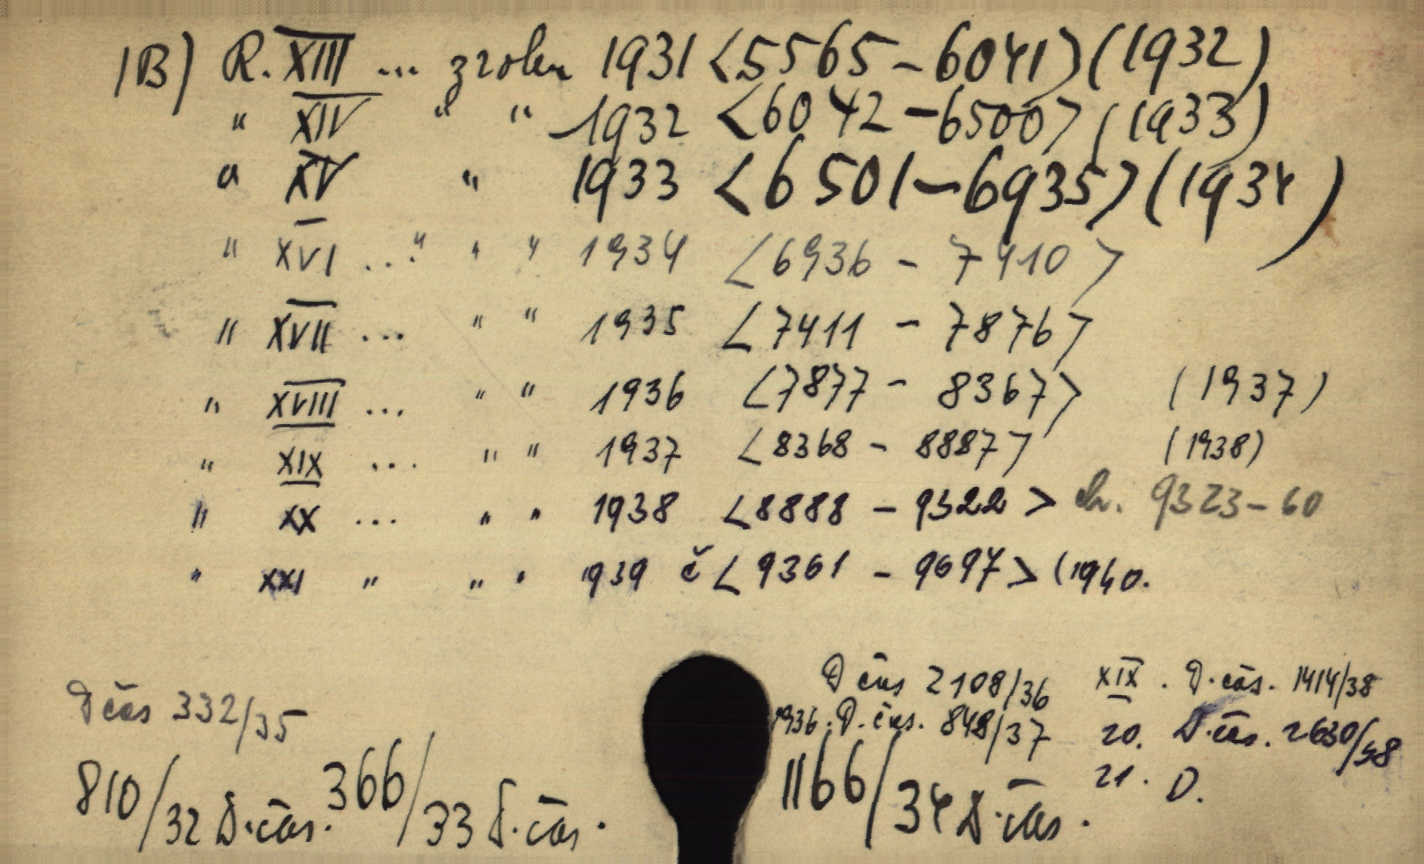 1B) R. XIII ... z roku 1931 <5565 - 6041> (1932)
" XIV " " 1932 <6042 - 6500> (1933)
" XV " 1933 <6501 - 6935> (1934)
" XVI ... " " " 1934 <6936 - 7410>
" XVII ... " " 1935 <7411 - 7876>
" XVIII ... " " 1936 <7877 - 8367> (1937)
" XIX ... " " 1937 <8368 - 8887> (1938)
" XX ... " " 1938 <8888 - 9322> ch. 9323-60
" XXI " " " 1939 č <9361 - 9697> (1940.
D čas 332/35
810/32 D. čas. 366/33 D. čas.
D čas 2108/36
1936. D. čas. 848/37
1166/34 D. čas.
XIX. D. čas. 1414/38
20. D. čas. 2630/48
21. D.